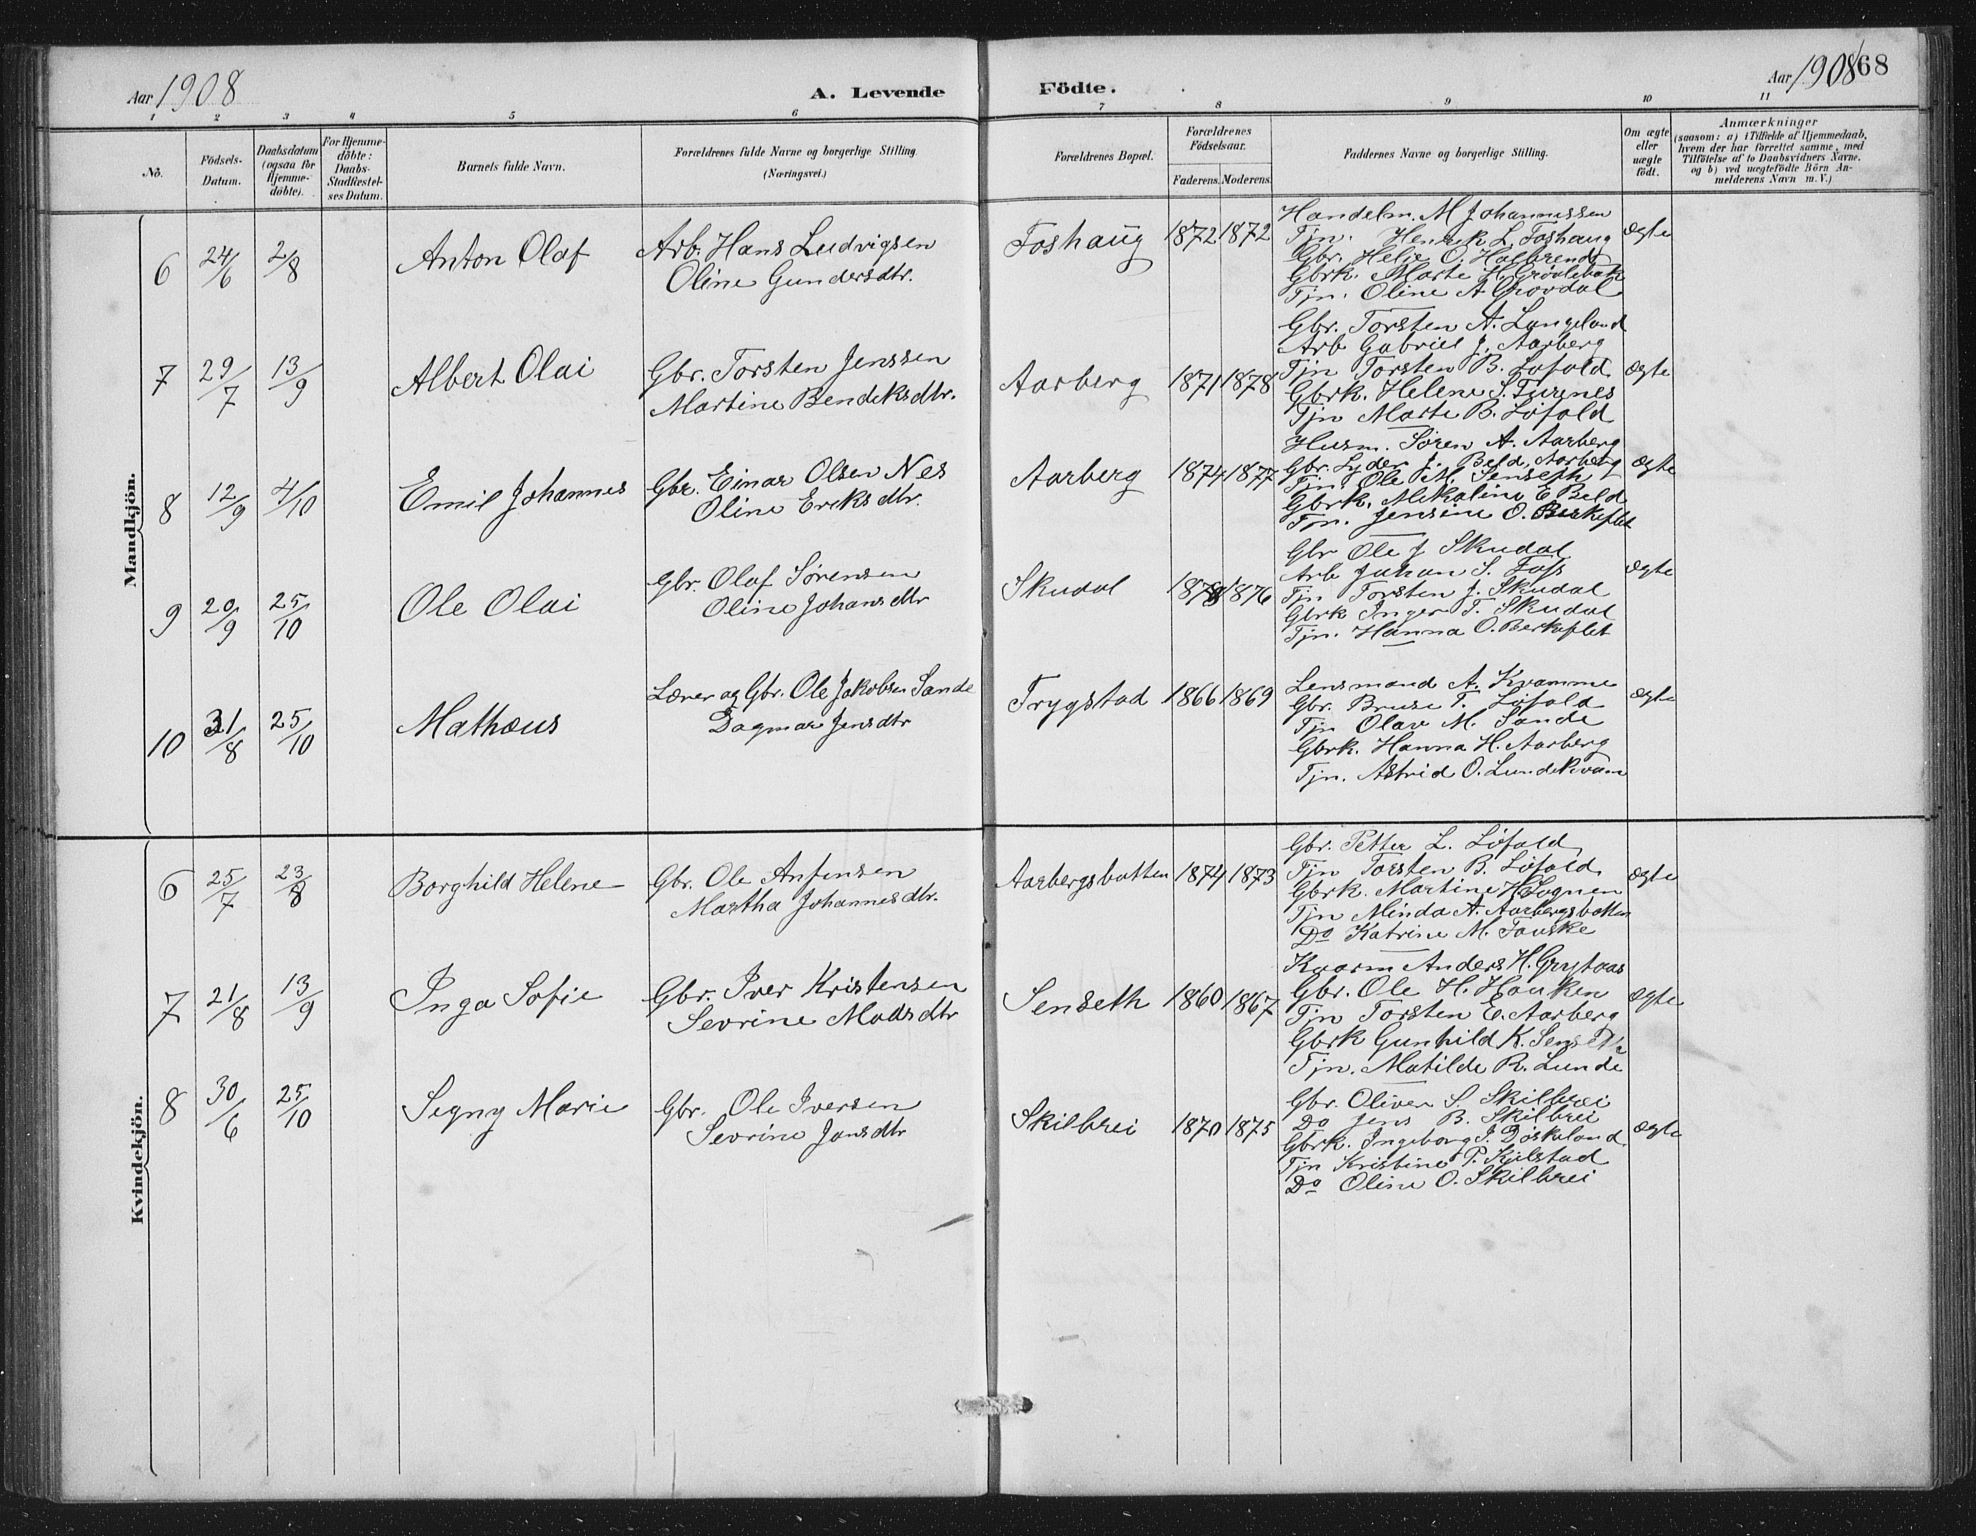 Aar 1908
A. Levende Födte.
Aar 1908
168
1 2 3 4 5 6 7 8 9 10 11
No.
Födsels-Datum.
Daabsdatum (ogsaa for Hjemme-döbte).
For Hjemme-döbte: Daabs-Stadfæstel-ses Datum.
Barnets fulde Navn.
Forældrenes fulde Navne og borgerlige Stilling.
(Næringsvei.)
Forældrenes Bopæl.
Forældrenes Födselsaar.
Faderens. Moderens.
Faddernes Navne og borgerlige Stilling.
Om ægte eller uægte födt.
Anmærkninger
(saasom: a) i Tilfælde af Hjemmedaab,
hvem der har forrettet samme, med
Tilföielse af to Daabsvidners Navne,
og b) ved uægtefödte Börn An-
melderens Navn m. V.)
Mandkjön.
6 24/6 2/8 Anton Olaf
Arb. Hans Ludvigsen
Oline Gundersdtr.
Foshaug 1872 1872
Handelm. M Johannessen
Tjn. Henrik L. Foshaug
Gbr. Helje O. Halbrend
Gbrk. Marte H. Grøvlebak
Tjn. Oline A Grovdal
ægte
7 29/7 13/9 Albert Olai
Gbr. Torsten Jenssen
Martine Bendiksdtr.
Aarberg 1871 1878
Gbr. Torsten A. Langeland
Arb Gabriel J. Aarberg
Tjn Torsten B. Lofald
Gbrk. Helene S. Furenes
Tjn Marte B. Löfald
ægte
8 12/9 4/10 Emil Johannes
Gbr. Einar Olsen Nes
Oline Eriksdtr.
Aarberg 1874 1877
Husm. Sören A. Aarberg
Gbr. Lyder J. Beld, Aarberg
Tjn. Ole M. Senseth
Gbrk. Mikaline E Beld
Tjn. Jensine O. Birkeflet
ægte
9 20/9 25/10 Ole Olai
Gbr. Olaf Sörensen
Oline Johansdtr
Skudal 1878 1876
Gbr Ole J Skudal
Arb Johan S. Foss
Tjn Torsten J. Skudal
Gbrk Inger T. Skudal
Tjn. Hanna O. Berkeflet
ægte
10 31/8 25/10 Mathæus
Lærer og Gbr. Ole Jakobsen Sande
Dagmar Jensdtr
Trygstad 1866 1869
Lensmand A. Kvamme
Gbr. Bruse T. Löfald
Tjn Olav M. Sande
Gbrk. Hanna H. Aarberg
Tjn. Astrid O. Lundekvam
ægte
Kvindekjön.
6 25/7 23/8 Borghild Helene
Gbr. Ole Anfensen
Martha Johannesdtr.
Aarbergsbotten 1874 1873
Gbr. Petter L. Löfald
Tjn Torsten B. Löfald
Gbrk. Martine H Sognen
Tjn Minda A. Aarbergsbotten
Do Katrine M. Fauske
ægte
7 21/8 13/9 Inga Sofie
Gbr. Iver Kristensen
Sevrine Madsdtr
Senseth 1860 1867
Kaarm Anders H. Grytaas
Gbr. Ole H. Hauken
Tjn Torsten E. Aarberg
Gbrk Gunhild K. Senseth
Tjn. Matilde R. Lunde
ægte
8 30/6 25/10 Segny Marie
Gbr. Ole Iversen
Sevrine Jansdtr
Skilbrei 1870 1875
Gbr. Oliver S. Skilbrei
Do Jens B. Skilbrei
Gbrk. Ingeborg J. Döskeland
Tjn Kristine P. Kjilstad
Do Oline O. Skilbrei
ægte